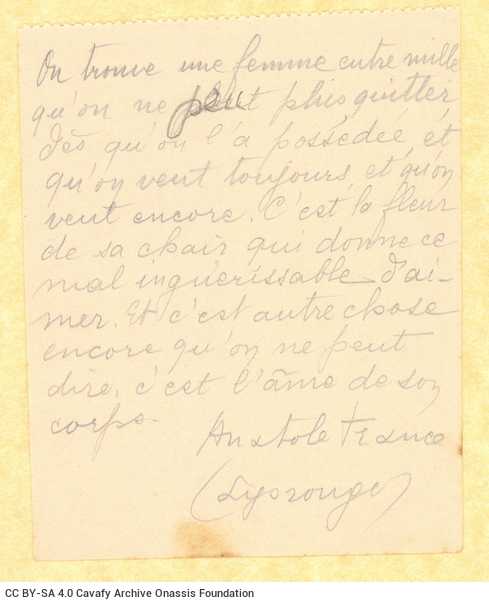 On trouve une femme entre mille
qu'on ne peut plus quitter
dès qu'on l'a possédée, et
qu'on veut toujours, et qu'on
veut encore. C'est la fleur
de sa chair qui donne ce
mal inguérissable d'ai-
mer. Et c'est autre chose
encore qu'on ne peut
dire, c'est l'âme de son
corps.
Anatole France
(Lys rouge)
CC BY-SA 4.0 Cavafy Archive Onassis Foundation